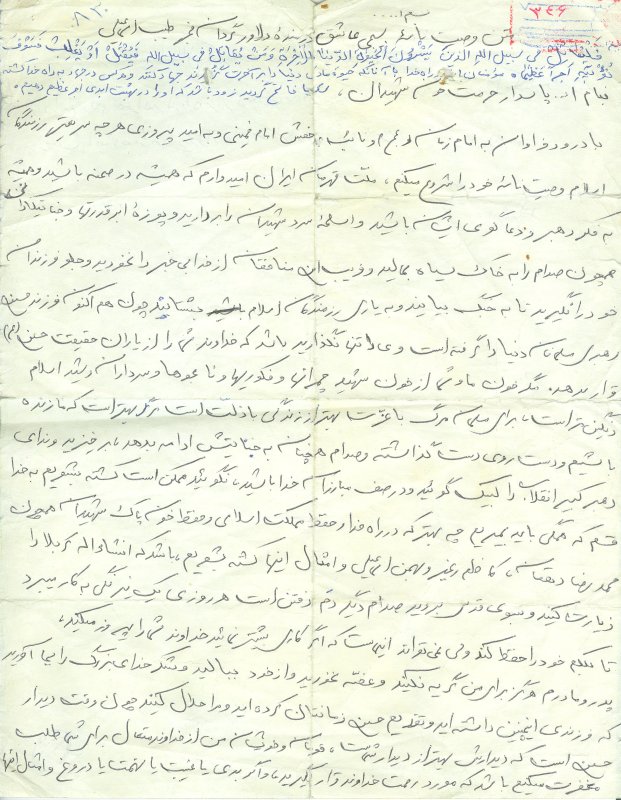 ۸۳۰
۳۴۶
متن وصیت نامه بسیجی عاشق رزمنده دلاور گردان فجر طیب اسماعیلی
فَلْیُقاتِلْ فی سبیل الله الذین یَشْرُونَ الْحَیوةَ الدُّنیا بِالْآخِرَةِ وَ مَنْ یُقاتِلْ فی سَبیلِ الله فَیُقْتَلْ اَوْ یَغْلِبْ فَسَوْفَ
نُؤْتیهِ اَجْراً عَظیماً مؤمنان باید در راه خدا با آنانکه حیوة مادی دنیا را بر آخرت گزیدند جهاد کنند و هر کس در جهاد به راه خدا کشته
بنام الله پاسدار حرمت خون شهیدان، شد یا فاتح گردید زود باشد که او را در بهشت ابدی اجر عظیم دهیم
با درود فراوان به امام زمان (عج) و نائب بر حقش امام خمینی و به امید پیروزی هر چه سریعتر رزمندگان
اسلام وصیت نامه خود را شروع میکنم، ملت قهرمان ایران امیدوارم که همیشه در صحنه باشید و همیشه
به فکر رهبر و دعاگوی ایشان باشید و اسلحه سرد شهیدان را بردارید و پوزه ابرقدرتها و جنایتکارانی
همچون صدام را به خاک سیاه بمالید و فریب این منافقان از خدا بی خبر را نخورید و جلو فرزندان
خود را نگیرید تا به جنگ بیایند و به یاری رزمندگان اسلام بشتابند چون هم اکنون فرزند حسین
رهبری مسلمانان دنیا را گرفته است و وی را تنها نگذارید باشد که خداوند شما را از یاران حقیقت حسین (ع)
قرار بدهد. مگر خون ما و شما از خون شهید چمرانها و فکوریها و نامجوها و سرداران رشید اسلام
رنگین‌تر است، برای مسلمان مرگ با عزت بهتر از زندگی با ذلت است مرگ بهتر است که ما زنده
باشیم و دست روی دست گذاشته و صدام همچنان به جنایتش ادامه بدهد، برخیزید و ندای
رهبر کبیر انقلاب را لبیک گوئید و در صف مبارزان خدا باشید، نگوئید ممکن است کشته بشویم به خدا
قسم که همگی باید بمیریم چه بهتر که در راه خدا و حفظ مملکت اسلامی و حفظ خون پاک شهیدان همچون
محمدرضا دهقان، کاظم و بهمن اسماعیلی و امثال اینها کشته بشویم، باشد که انشاءاله کربلا را
زیارت کنید و بسوی قدس بروید صدام دیگر دم رفتن است هر روزی یک نیرنگی به کار میبرد
تا بلکه خود را حفظ کند ولی نمی‌تواند اینست که اگر کاری بیشتر نمائید خداوند شما را پیروز میکند،
پدر و مادرم هرگز برای من گریه نکنید و غصه نخورید و از خود ببالید و شکر خدای بزرگ را بجا آورید
که فرزندی اینچنین داشته اید و تقدیم حسین زمانتان کرده اید و مرا حلال کنید چون وقت دیدار
حسین است که دیدارش بهتر از دیدار شماست، قوم و خویشان من از خداوند متعال برای شما طلب
مغفرت میکنم باشد که مورد رحمت خداوند قرار گیرید، و اگر بدی یا غیبت یا تهمت یا دروغ و امثال اینها